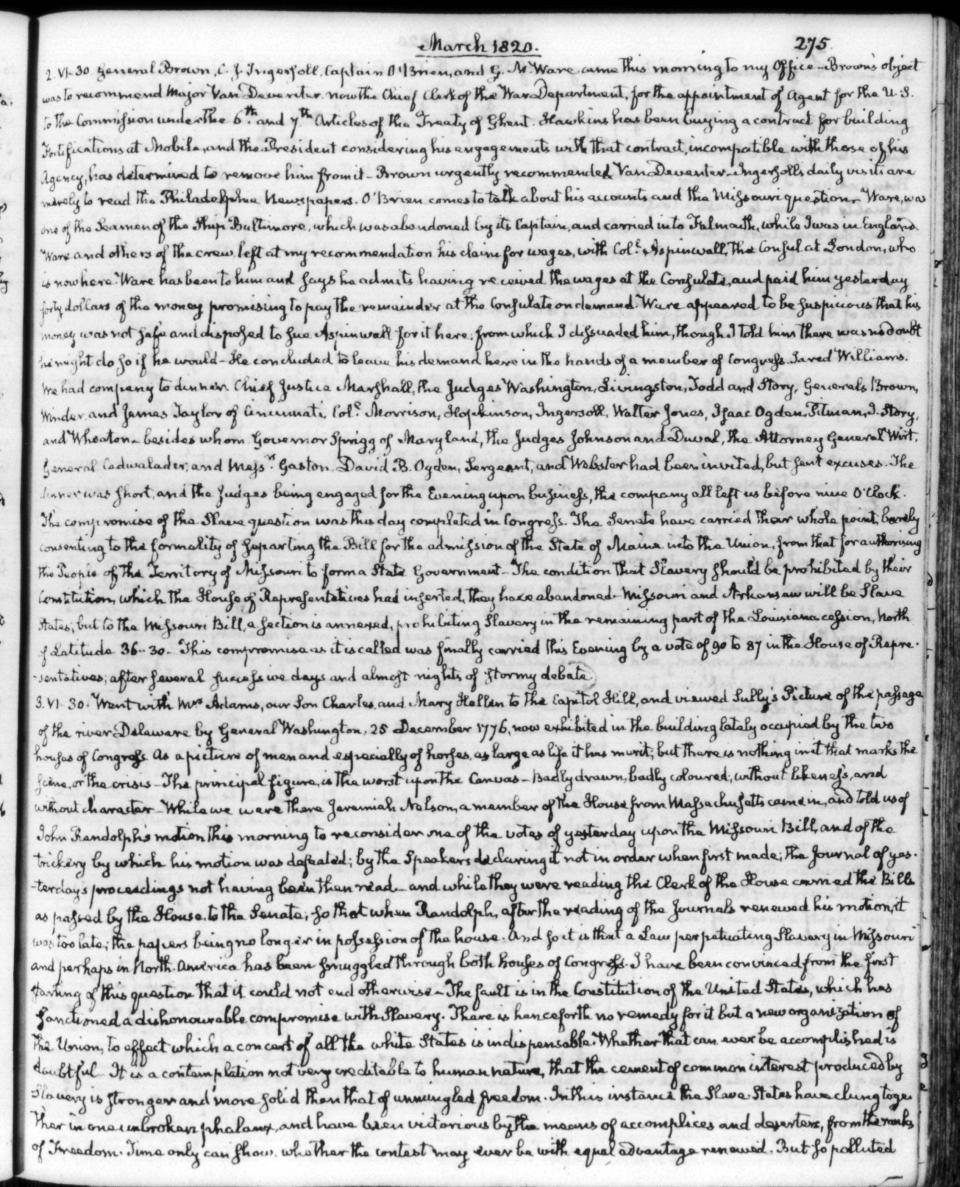 March 1820.
275
2. VI-30. General Brown, C. J. Ingersoll, Captain O'Brien, and G. M. Ware came this morning to my Office - Brown's object
was to recommend Major Van Deventer now the Chief Clerk of the War Department, for the appointment of Agent for the U.S.
to the Commission under the 6th and 7th Articles of the Treaty of Ghent. Hawkins has been buying a contract for building
Fortifications at Mobile, and the President considering his engagements with that contract, incompatible with those of his
Agency, has determined to remove him from it - Brown urgently recommended Van Deventer - Ingersoll's daily visits are
merely to read the Philadelphia Newspapers. O'Brien comes to talk about his accounts and the Missouri question. Ware, was
one of the Seamen of the Ship Baltimore, which was abandoned by its Captain, and carried into Falmouth, while I was in England.
Ware and others of the crew left at my recommendation his claim for wages, with Coll. Aspinwall, the Consul at London, who
is now here. Ware has been to him and says he admits having received the wages at the Consulate, and paid him yesterday
forty dollars of the money promising to pay the remainder at the Consulate on demand. Ware appeared to be suspicious that his
money was not safe and disposed to sue Aspinwall for it here, from which I dissuaded him, though I told him there was no doubt
he might do so if he would - He concluded to leave his demand here in the hands of a member of Congress Jared Williams.
We had company to dinner. Chief Justice Marshall, the Judges Washington, Livingston, Todd and Story, Generals Brown,
Winder and James Taylor of Cincinnati, Coll. Morrison, Hopkinson, Ingersoll, Walter Jones, Isaac Ogden, Pitman, J. Story,
and Wheaton - besides whom Governor Sprigg of Maryland, the Judges Johnson and Duval, the Attorney General Wirt,
General Cadwalader, and Messrs Gaston, David B. Ogden, Sergeant, and Webster had been invited, but sent excuses. The
dinner was short, and the Judges being engaged for the Evening upon business, the company all left us before nine O'Clock.
The compromise of the Slave question was this day completed in Congress. The Senate have carried their whole point, barely
consenting to the formality of separting the Bill for the admission of the State of Maine into the Union, from that for authorising
the People of the Territory of Missouri to form a State Government - The condition that Slavery should be prohibited by their
Constitution, which the House of Representatives had inserted, they have abandoned - Missouri and Arkansaw will be Slave
States, but to the Missouri Bill, a section is annexed, prohibiting Slavery in the remaining part of the Louisiana cession, North
of Latitude 36-30 - This compromise as it is called was finally carried this Evening by a vote of 90 to 87 in the House of Repre-
-sentatives; after several successive days and almost nights of stormy debate.
3. VI-30. Went with Mrs Adams, our Son Charles, and Mary Hellen to the Capitol Hill, and viewed Sully's Picture of the passage
of the river Delaware by General Washington, 25 December 1776, now exhibited in the building lately occupied by the two
houses of Congress. As a picture of men and especially of horses, as large as life it has merit; but there is nothing in it that marks the
scene, or the crisis - The principal figure, is the worst upon the Canvas - Badly drawn, badly coloured, without likeness, and
without character - While we were there Jeremiah Nelson, a member of the House from Massachusetts came in, and told us of
John Randolph's motion this morning to reconsider one of the votes of yesterday upon the Missouri Bill, and of the
trickery by which his motion was defeated; by the Speaker's declaring it not in order when first made; the Journal of yes-
-terday's proceedings not having been then read - and while they were reading the Clerk of the House carried the Bills
as passed by the House, to the Senate; so that when Randolph, after the reading of the Journals renewed his motion, it
was too late; the papers being no longer in possession of the house. And so it is that a Law perpetuating Slavery in Missouri
and perhaps in North-America has been smuggled through both houses of Congress. I have been convinced from the first
starting of this question that it could not end otherwise - The fault is in the Constitution of the United States, which has
sanctioned a dishonourable compromise with Slavery. There is henceforth no remedy for it but a new organization of
the Union, to effect which a concert of all the white States is indispensable. Whether that can ever be accomplished is
doubtful - It is a contemplation not very creditable to human nature, that the cement of common interest produced by
Slavery is stronger and more solid than that of unmingled freedom. In this instance the Slave-States have clung toge-
ther in one unbroken phalanx, and have been victorious by the means of accomplices and deserters, from the ranks
of Freedom. Time only can show, whether the contest may ever be with equal advantage renewed. But so polluted